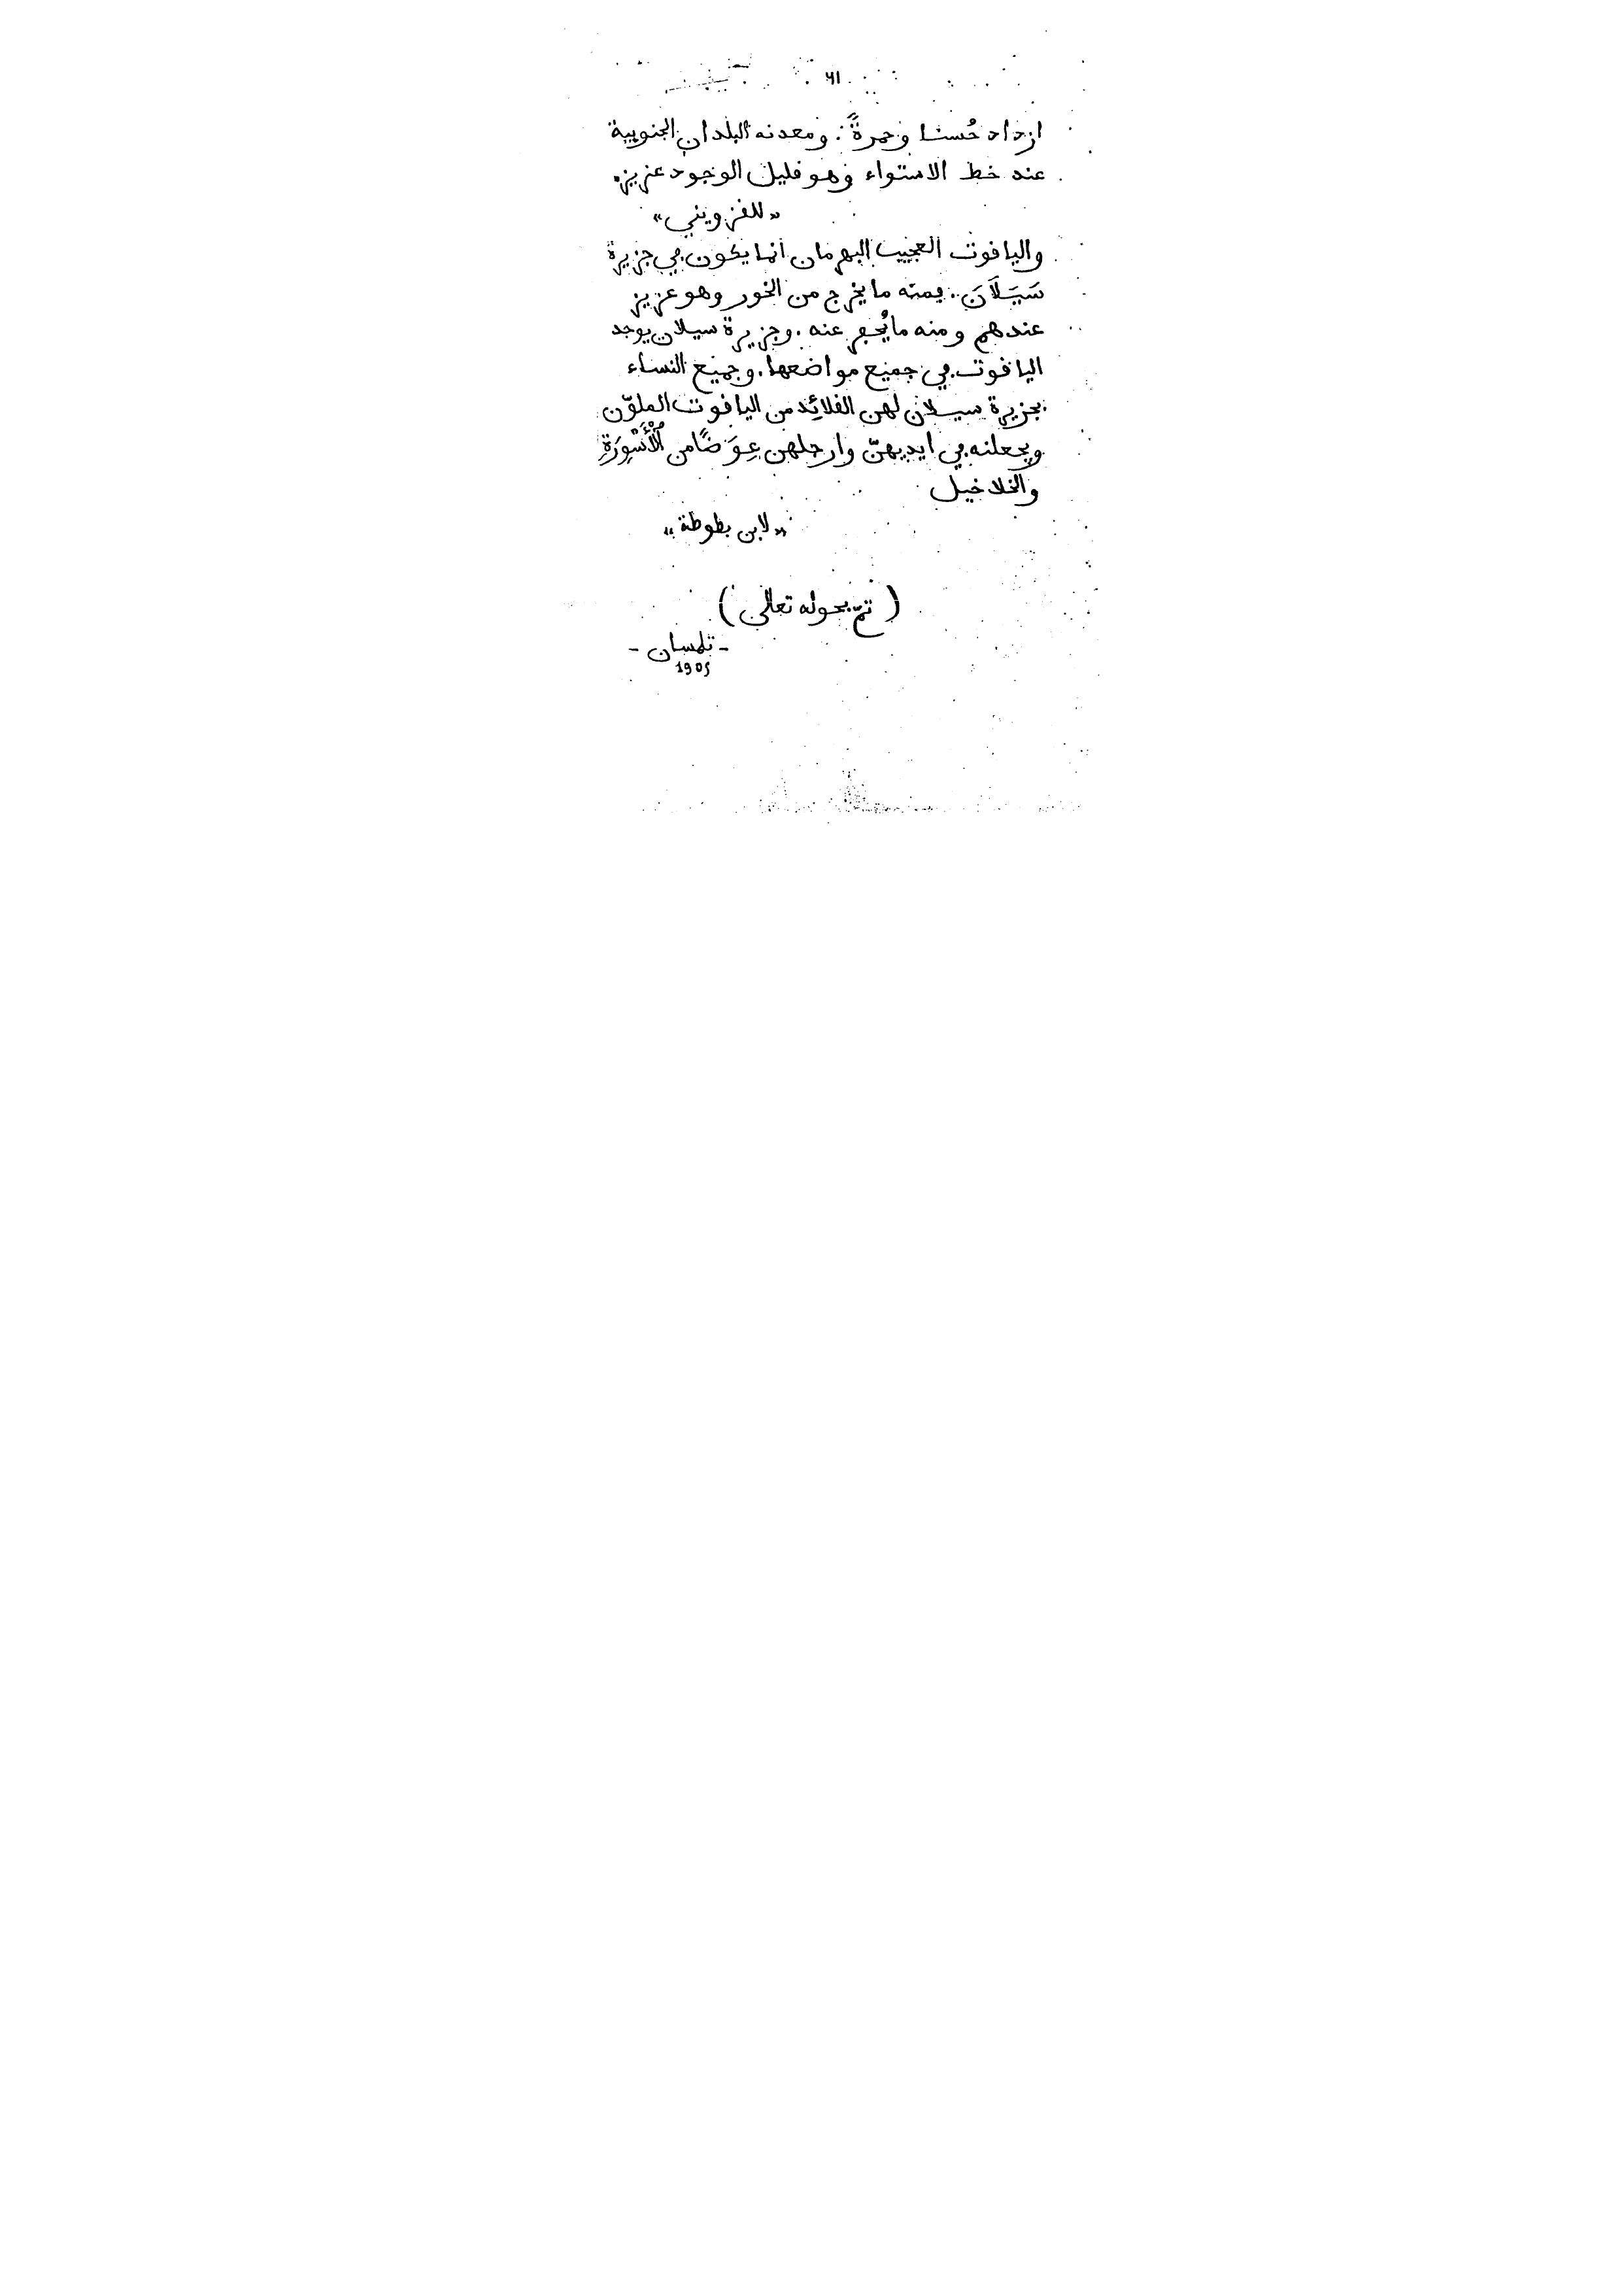 ٤١
ازداد حُسنا وحمرةً. ومعدنه البلدان الجنوبية
عند خط الاستواء وهو ڧليل الوجود عزيز.
«للڧزويني»
والياڧوت العجيب البهرمان انما يكون ڢي جزيرة
سَيَلَانَ. ڢمنه ما يخرج من الخور وهو عزيز
عندهم ومنه ما يُحڢر عنه. وجزيرة سيلان يوجد
الياڧوت ڢي جميع مواضعها. وجميع النساء
بجزيرة سيلان لهن الڧلائد من الياڧوت الملوّن
ويجعلنه ڢي ايديهنّ وارجلهن عِوَضًا من ٱلْأَسْوِرَةِ
والخلاخيل
«لابن بطوطة»
(تمّ بحوله تعالى)
- تلمسان -
1905